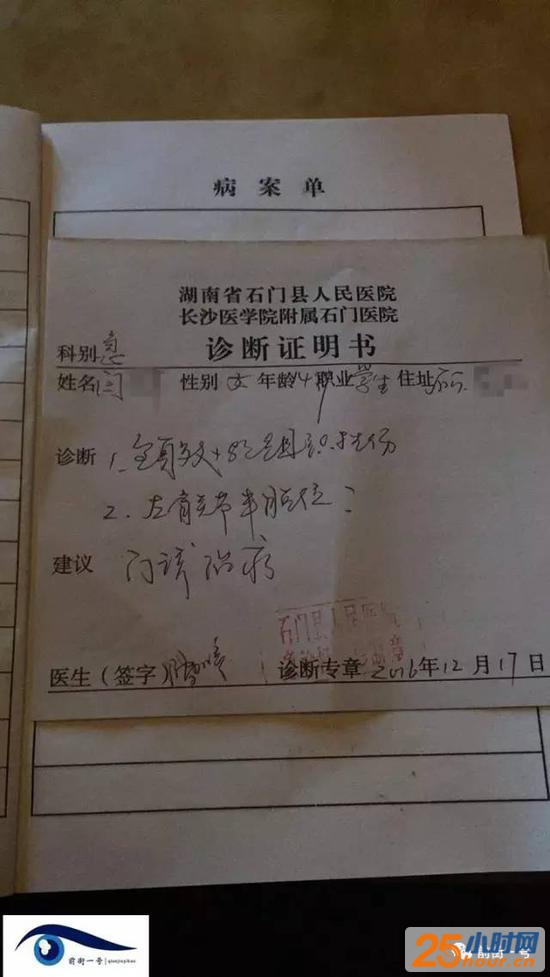 病案单
湖南省石门县人民医院
长沙医学院附属石门医院
科别 急 诊断证明书
姓名 闫 性别 女 年龄 14 职业 学生 住址
诊断 1. 全身多处软组织挫伤
2. 左肩关节半脱位?
建议 门诊治疗
医生(签字) 诊断专章 2016年12月17日
石门县人民医院
前街一号 qianjieyihao
前街一号
25小时网
25hour.cn